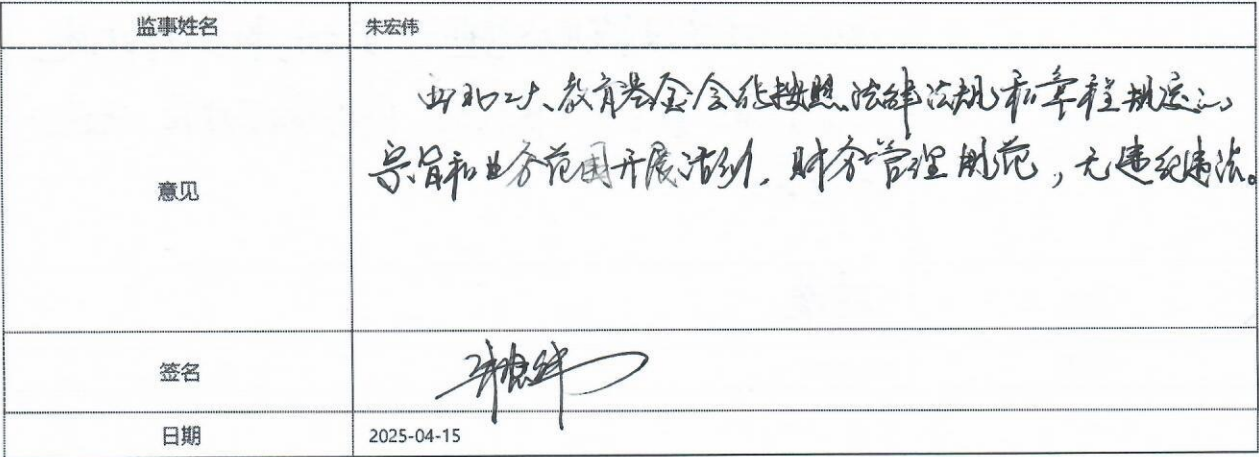 监事姓名 朱宏伟
意见
西北工大教育基金会能按照法律法规和章程规定的
宗旨和业务范围开展活动，财务管理规范，无违纪违法。
签名 朱宏伟
日期 2025-04-15